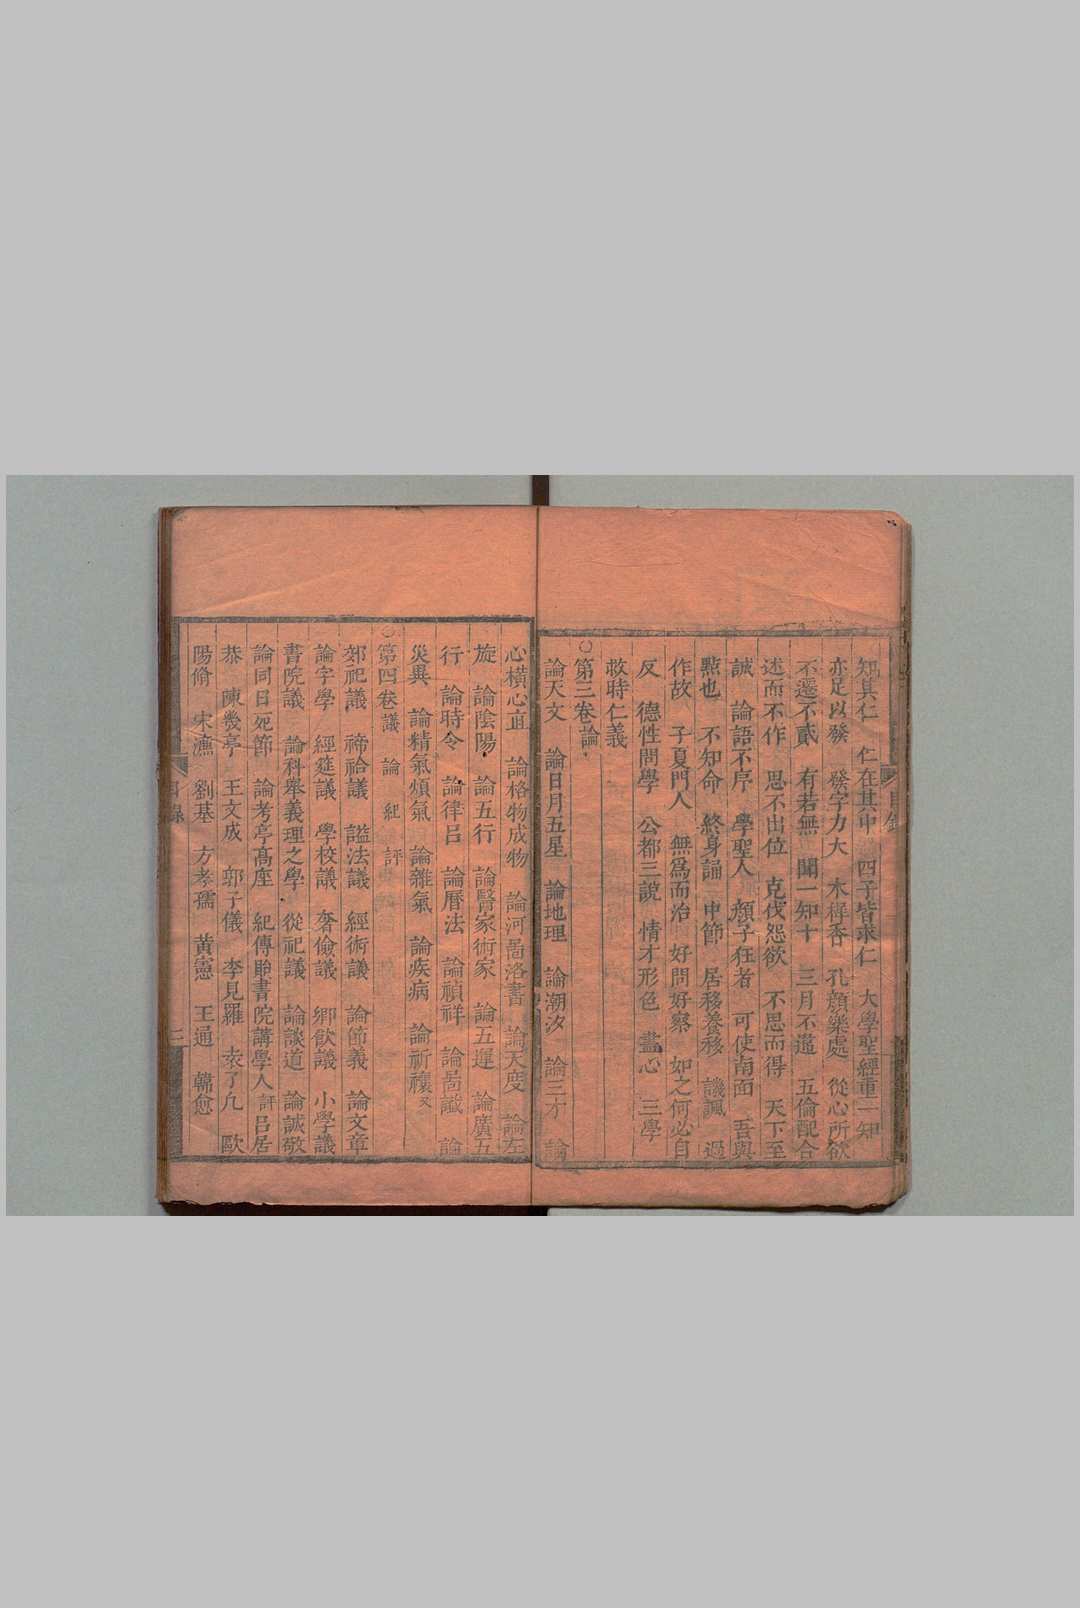 知其仁　仁在其中　四子皆求仁　大學聖經重一知
亦足以發　發字力大　木樨香　孔顏樂處　從心所欲
不遷不貳　有若無　聞一知十　三月不違　五倫配合
述而不作　思不出位　克伐怨欲　不思而得　天下至
誠　論語不序　學聖人　顏子狂者　可使南面　吾與
點也　不知命　終身誦　中節　居移養移　譏諷　過
作故　子夏門人　無為而治　好問好察　如之何必自
反　德性問學　公都三說　情才形色　盡心　三學
救時仁義
○第三卷論
論天文　論日月五星　論地理　論潮汐　論三才　論
目錄
心橫心直　論格物成物　論河啚洛書　論天度　論左
旋　論陰陽　論五行　論醫家術家　論五運　論廣五
行　論時令　論律呂　論曆法　論禎祥　論啚讖　論
災異　論精氣煩氣　論雜氣　論疾病　論祈禳又
○第四卷議　論　紀　評
郊祀議　禘祫議　謚法議　經術議　論節義　論文章
論字學　經筵議　學校議　奢儉議　鄉飲議　小學議
書院議　論科舉義理之學　從祀議　論談道　論誠敬
論同日死節　論考亭高座　紀傳聊書院講學人評呂居
恭　陳幾亭　王文成　郭子儀　李見羅　袁了凡　歐
陽脩　宋濂　劉基　方孝孺　黃憲　王通　韓愈
目錄　二